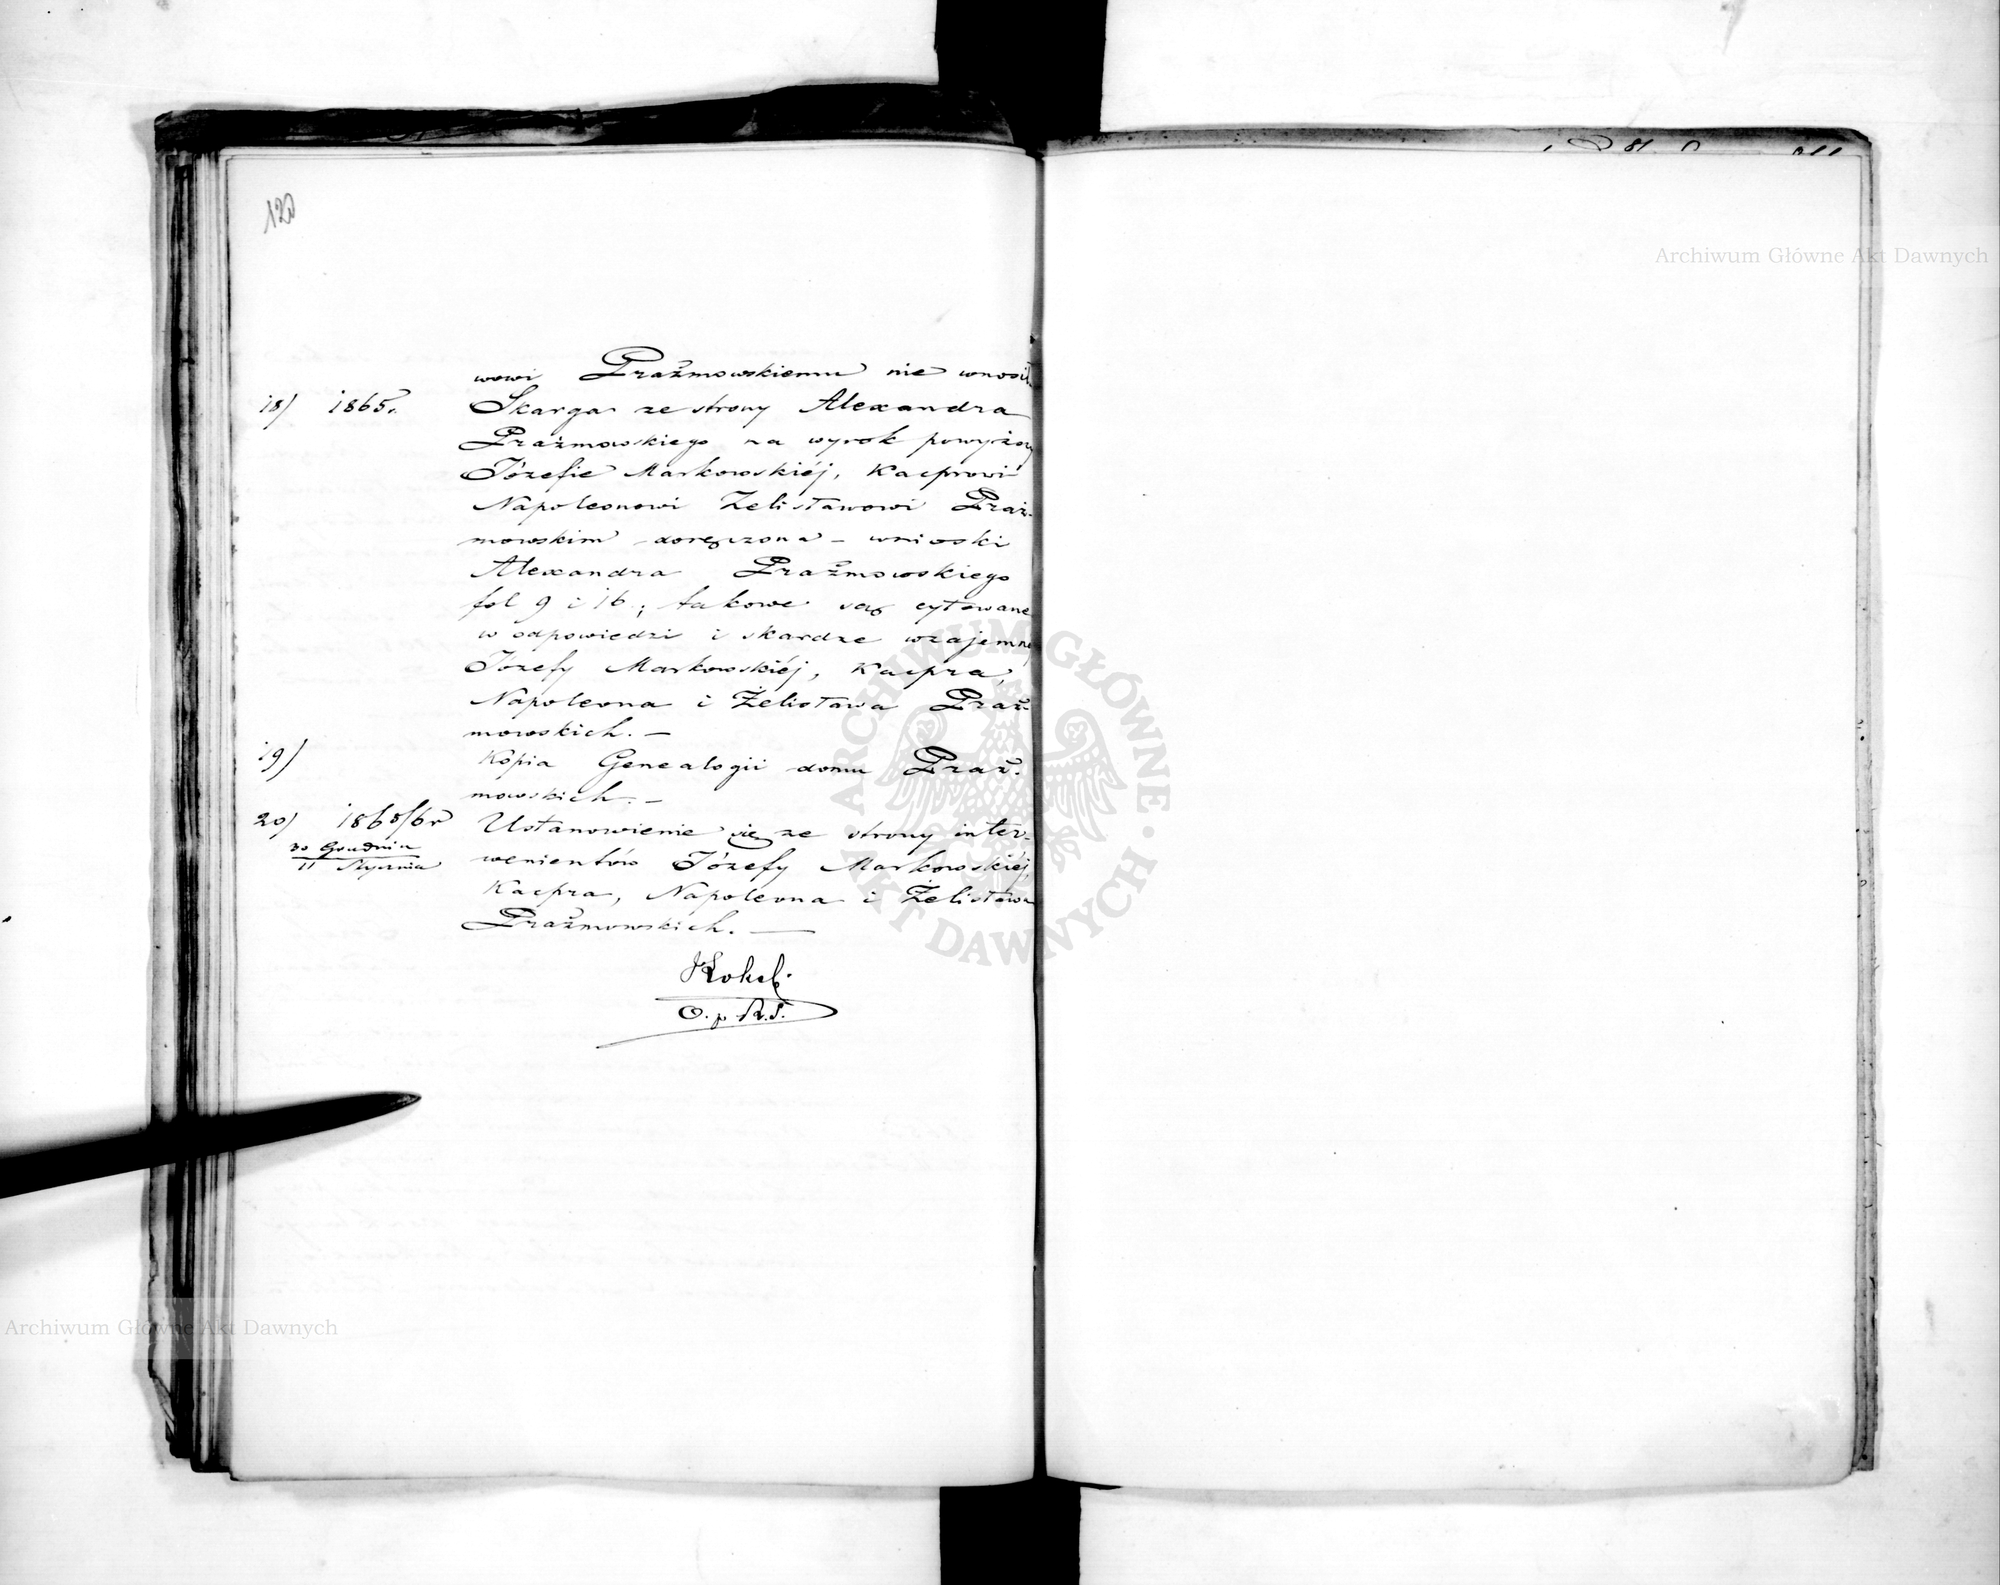 120
wowi Prażmowskiemu nie wnosił
18) 1865r. Skarga ze strony Alexandra
Prażmowskiego na wyrok powyższy
Józefie Markowskiéj, Kacprowi
Napoleonowi Żelisławowi Praż-
mowskim doręczona – wnioski
Alexandra Prażmowskiego
fol 9 i 16; takowe są cytowane
w odpowiedzi i skardze wzajemnej
Józefy Markowskiéj, Kacpra,
Napoleona i Żelisława Praż-
mowskich. —
19) Kopia Genealogii domu Praż-
mowskich. —
20) 1865/6r Ustanowienie się ze strony inter-
30 Grudnia
11 Stycznia
wenientów Józefy Markowskiéj,
Kacpra, Napoleona i Żelisława
Prażmowskich. —
O. p. R. S.
Archiwum Główne Akt Dawnych
Archiwum Główne Akt Dawnych
ARCHIWUM GŁÓWNE AKT DAWNYCH